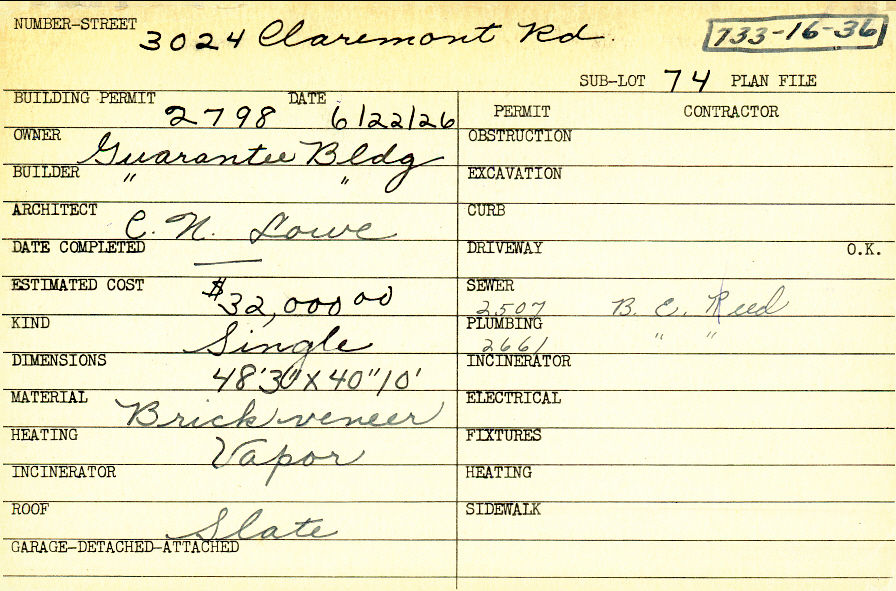 NUMBER-STREET 3024 Claremont Rd. 733-16-36
SUB-LOT 74 PLAN FILE
BUILDING PERMIT 2798 DATE 6/22/26 PERMIT CONTRACTOR
OWNER Guarantee Bldg OBSTRUCTION
BUILDER " " EXCAVATION
ARCHITECT C. N. Lowe CURB
DATE COMPLETED — DRIVEWAY O.K.
ESTIMATED COST $32,000 00 SEWER 2507 B. E. Reed
KIND Single PLUMBING 2661 " "
DIMENSIONS 48'30"X40"10' INCINERATOR
MATERIAL Brick veneer ELECTRICAL
HEATING Vapor FIXTURES
INCINERATOR HEATING
ROOF Slate SIDEWALK
GARAGE-DETACHED-ATTACHED